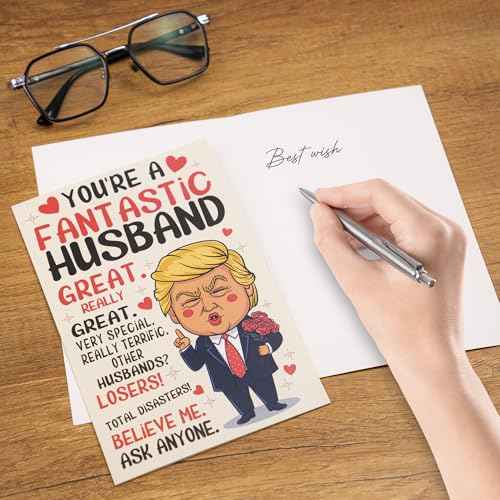 YOU'RE A
FANTASTIC
HUSBAND
GREAT.
REALLY
GREAT.
VERY SPECIAL,
REALLY TERRIFIC,
OTHER
HUSBANDS?
LOSERS!
TOTAL DISASTERS!
BELIEVE ME.
ASK ANYONE.
Best wish